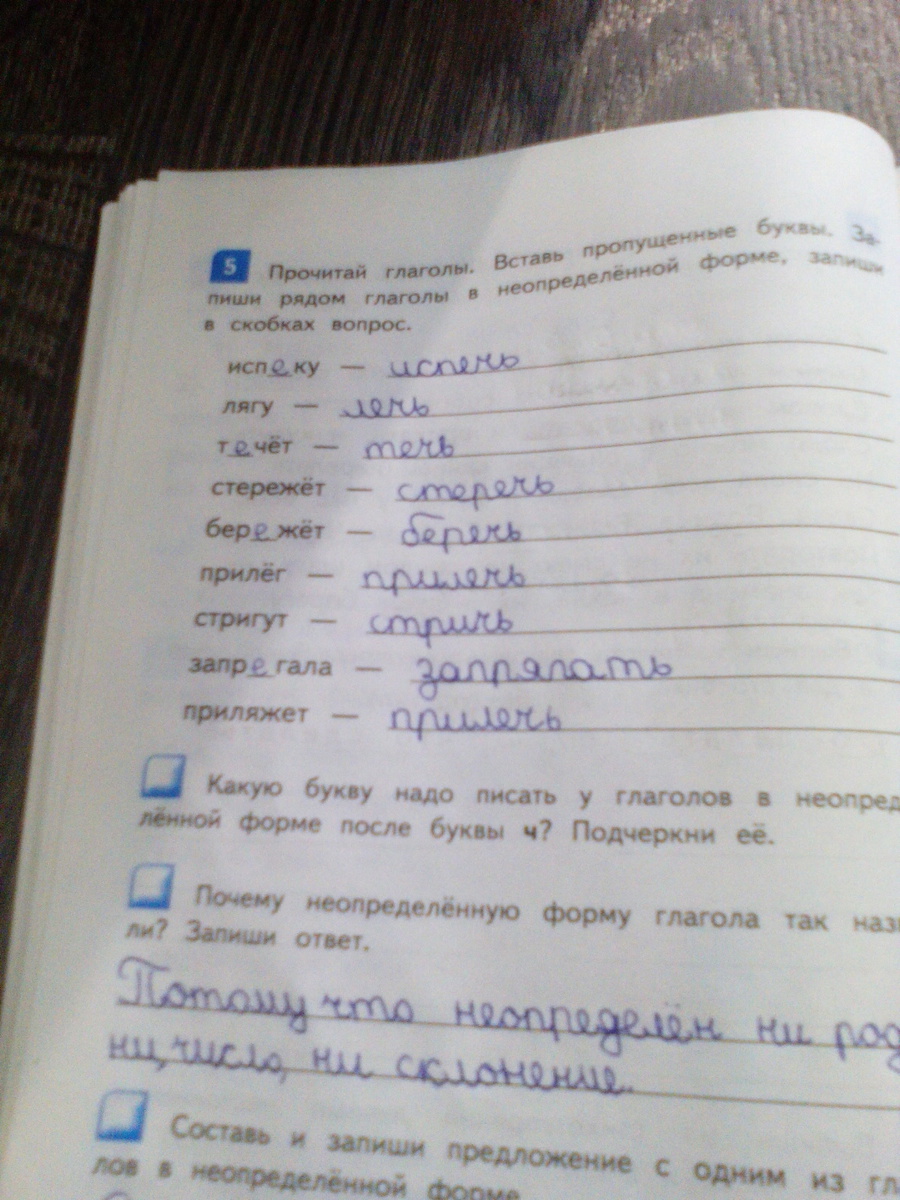 5 Прочитай глаголы. Вставь пропущенные буквы. За-
пиши рядом глаголы в неопределённой форме, запиши
в скобках вопрос.
испеку — испечь
лягу — лечь
течёт — течь
стережёт — стеречь
бережёт — беречь
прилёг — прилечь
стригут — стричь
запрегала — запрягать
приляжет — прилечь
Какую букву надо писать у глаголов в неопред
лённой форме после буквы ч? Подчеркни её.
Почему неопределённую форму глагола так назв
ли? Запиши ответ.
Потому что неопределён ни род
ни, число, ни склонение.
Составь и запиши предложение с одним из гл
лов в неопределённой форме